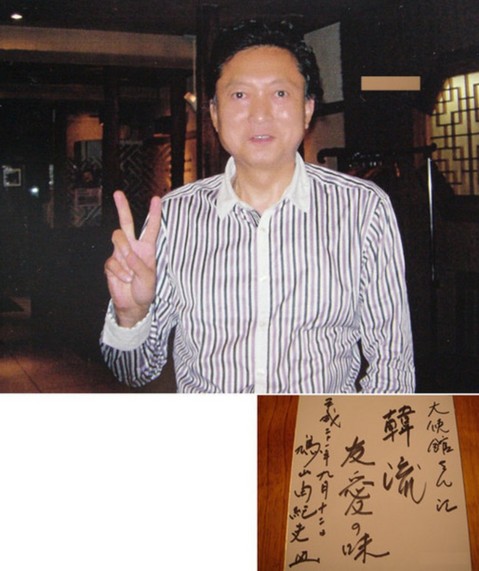 大使館さん江
韓流
友愛の味
平成二十一年九月十二日
鳩山由紀夫